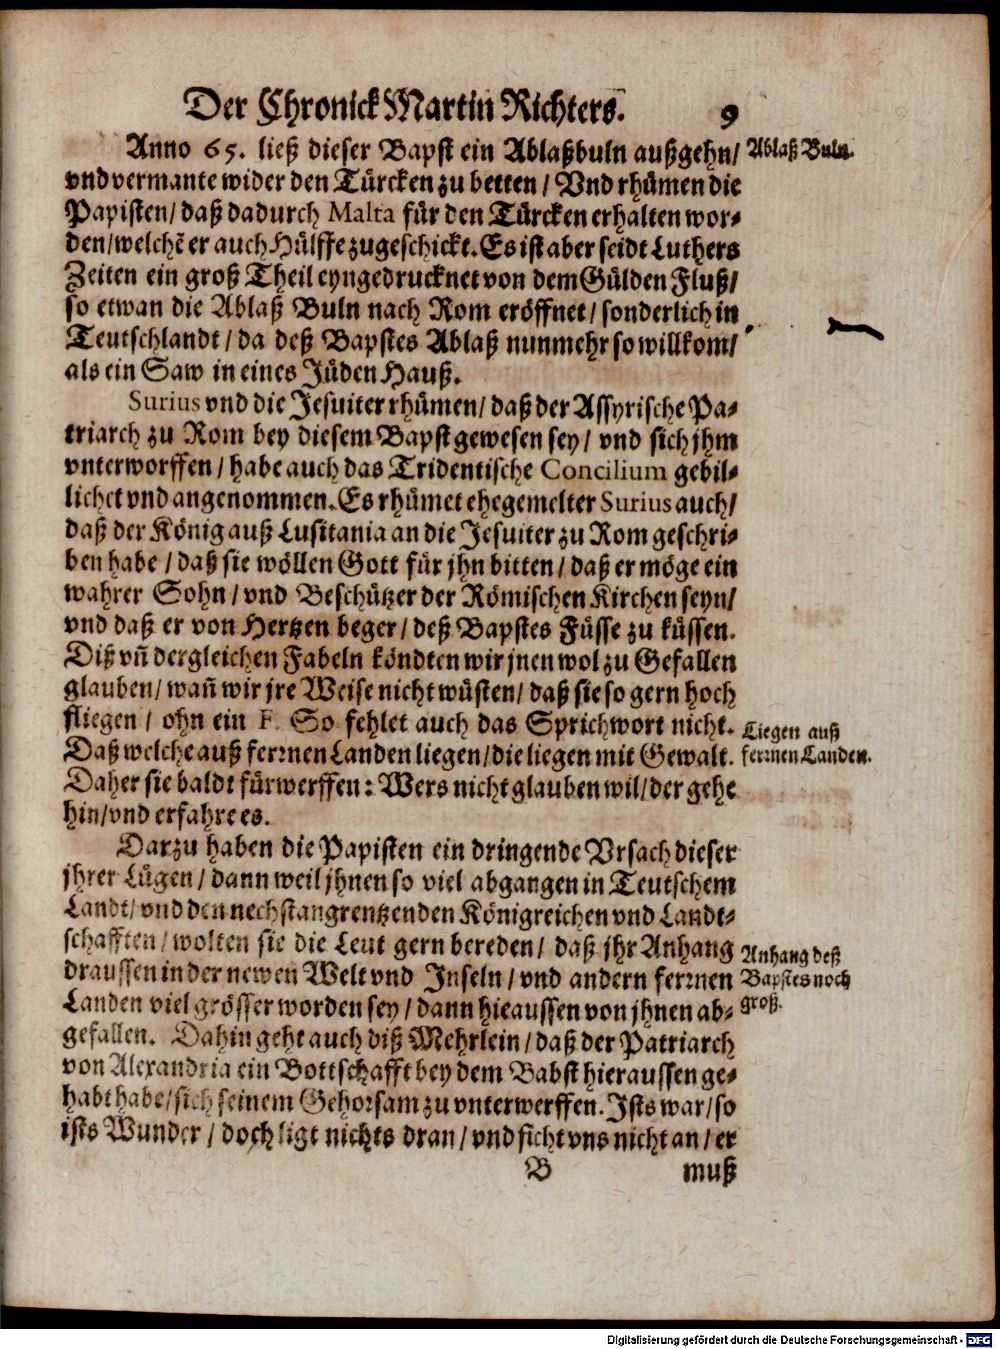 Der Chronick Martin Richters. 9
Anno 65. ließ dieser Bapst ein Ablaßbuln außgehn/ Ablaß Buln.
vnd vermante wider den Türcken zu betten / Vnd rhümen die
Papisten/ daß dadurch Malta für den Türcken erhalten wor-
den/welchẽ er auch Hülffe zugeschickt. Es ist aber seidt Luthers
Zeiten ein groß Theil eyngedrucknet von dem Gülden Fluß/
so etwan die Ablaß Buln nach Rom eröffnet/ sonderlich in
Teutschlandt / da deß Bapstes Ablaß nunmehr so willkom/
als ein Saw in eines Jüden Hauß.
Surius vnd die Jesuiter rhümen/ daß der Assyrische Pa-
triarch zu Rom bey diesem Bapst gewesen sey/ vnd sich jhm
vnterworffen / habe auch das Tridentische Concilium gebil-
lichet vnd angenommen. Es rhümet ehegemelter Surius auch/
daß der König auß Lusitania an die Jesuiter zu Rom geschri-
ben habe / daß sie wöllen Gott für jhn bitten / daß er möge ein
wahrer Sohn / vnd Beschützer der Römischen Kirchen seyn/
vnd daß er von Hertzen beger / deß Bapstes Füsse zu küssen.
Diß vñ dergleichen Fabeln köndten wir jnen wol zu Gefallen
glauben/ wañ wir jre Weise nicht wüsten/ daß sie so gern hoch
fliegen / ohn ein F. So fehlet auch das Sprichwort nicht. Liegen auß
Daß welche auß ferrnen Landen liegen/die liegen mit Gewalt. ferrnen Landen.
Daher sie baldt fürwerffen: Wers nicht glauben wil/der gehe
hin/vnd erfahre es.
Darzu haben die Papisten ein dringende Vrsach dieser
jhrer Lügen / dann weil jhnen so viel abgangen in Teutschem
Landt/ vnd den nechstangrentzenden Königreichen vnd Landt-
schafften / wolten sie die Leut gern bereden / daß jhr Anhang Anhang deß
draussen in der newen Welt vnd Inseln / vnd andern ferrnen Bapstes noch
Landen viel grösser worden sey / dann hieaussen von jhnen ab- groß.
gefallen. Dahin geht auch diß Mehrlein / daß der Patriarch
von Alexandria ein Bottschafft bey dem Babst hieraussen ge-
habt habe/sich seinem Gehorsam zu vnterwerffen. Ists war/so
ists Wunder / doch ligt nichts dran / vnd ficht vns nicht an / er
B muß
Digitalisierung gefördert durch die Deutsche Forschungsgemeinschaft - DFG